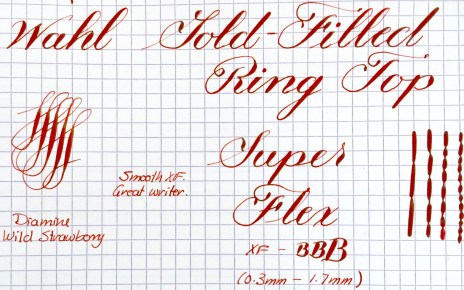 Wahl Gold-Filled
Ring Top
Smooth XF.
Great writer.
Super
Flex
Diamine
Wild Strawberry
XF - BBB
(0.3mm - 1.7mm)